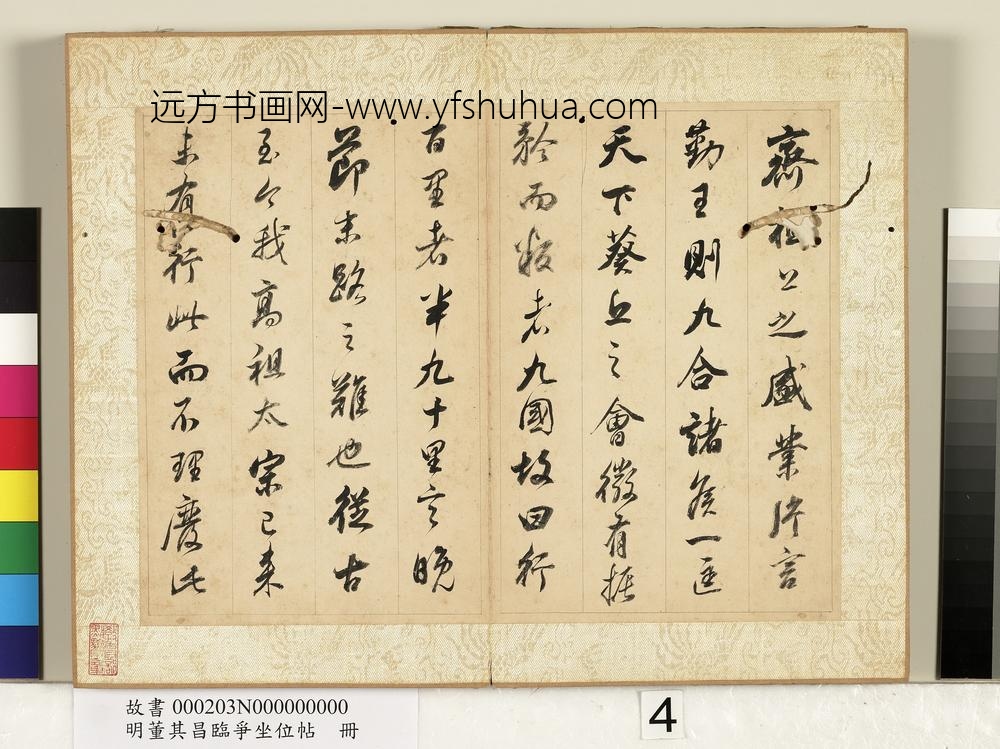 远方书画网-www.yfshuhua.com
齊桓公之盛業片言
勤王則九合諸侯一匡
天下葵丘之會微有振
矜而叛者九國故曰行
百里者半九十里言晚
節末路之難也從古
至今我高祖太宗已來
未有行此而不理廢此
故書 000203N000000000
明董其昌臨爭坐位帖 冊
4